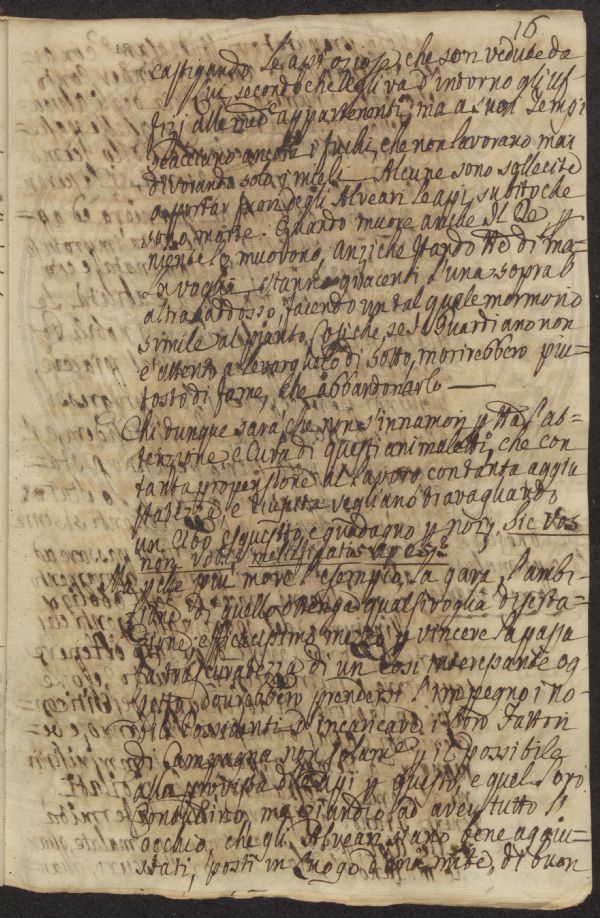 16
castigando le api oziose, che son vedute da
lui, secondo che egli va d'intorno gli uf=
fizj alle med.e appartenenti, ma a suoi tempi
scacciano ancora i fuchi, che non lavorano mai
divorando solo i meli. Alcune sono sollecite
a portar fuori degli Alveari le api, subito che
sono morte. Quando muore anche il Re p
niente si muovono, anziche stando tte di ma=
la voglia stanno giacenti l'una sopra l'
altra addosso, facendo un tal quale mormorio
simile al pianto, cosiche, se il Guardiano non
è attento a levarglielo di sotto, morirebbero piu=
tosto di fame, che abbandonarlo —
Chi dunque sarà che non s'innamori p tta l'at=
tenzione, e Cura di questi animaletti, che con
tanta propensione al lavoro, con tanta aggiu
statezza, e vegliano travagliando
un Cibo esquisito, e guadagno p noi. Sic vos
non vobis mellificatis apes?
Ma p che più move l'esempio, la gara, l'ambi=
zione, di quello ottenga qualsivoglia diserta=
zione, efficacissimo mezzo p vincere la passa
ta trascuratezza di un così interessante og
getto, dovrebbero prendersi l'impegno i no=
bili Possidenti d'incaricare i loro Fattori
di Campagna non solame p il possibile
alla provista di Api p questo, e quel loro
Contadino, ma eziandio ad aver tutto l'
occhio, che gli Alveari siano bene aggiu=
stati, posti in luogo, di buon